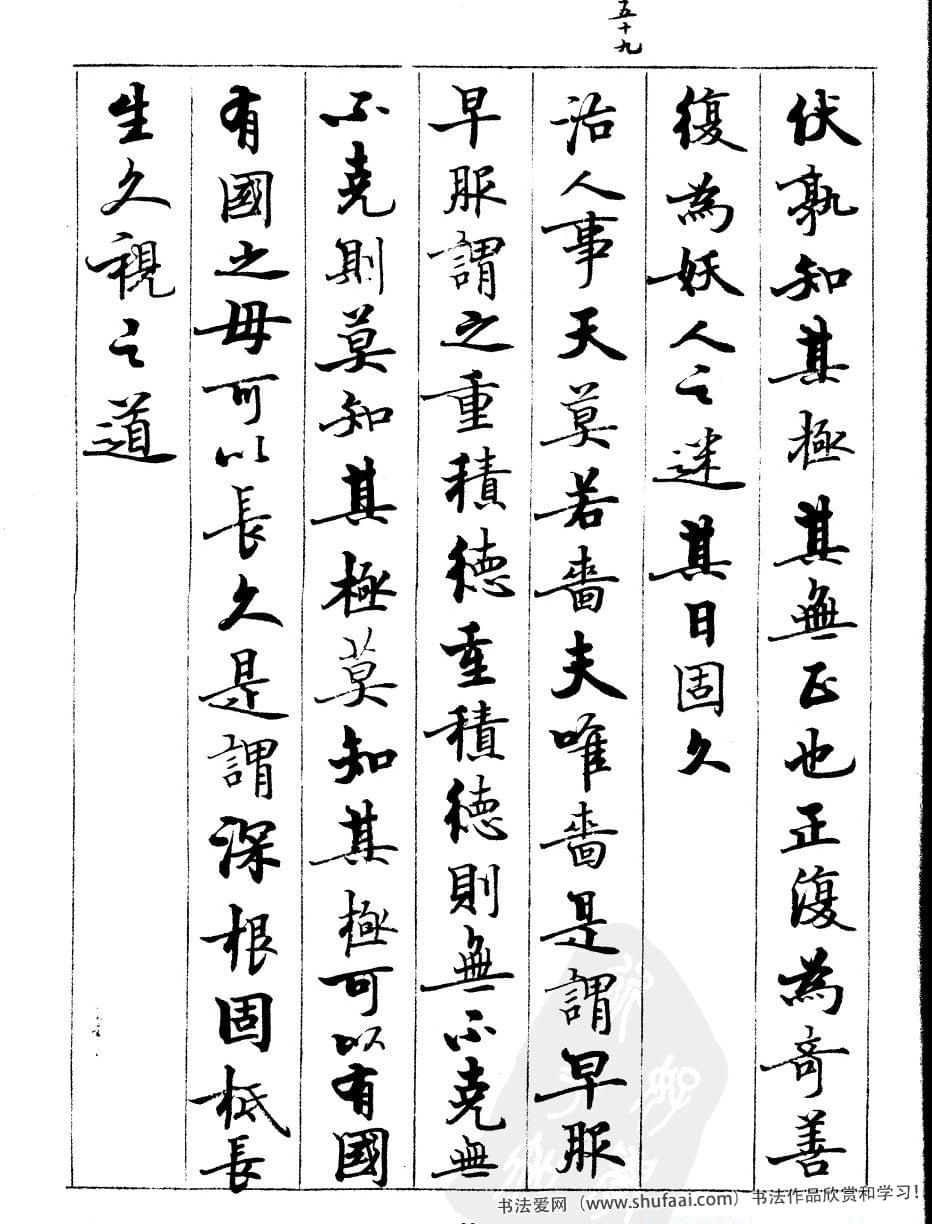 五十九
伏孰知其極其無正也正復為奇善
復為妖人之迷其日固久
治人事天莫若嗇夫唯嗇是謂早服
早服謂之重積德重積德則無不克無
不克則莫知其極莫知其極可以有國
有國之母可以長久是謂深根固柢長
生久視之道
书法爱网(www.shufaai.com)书法作品欣赏和学习!